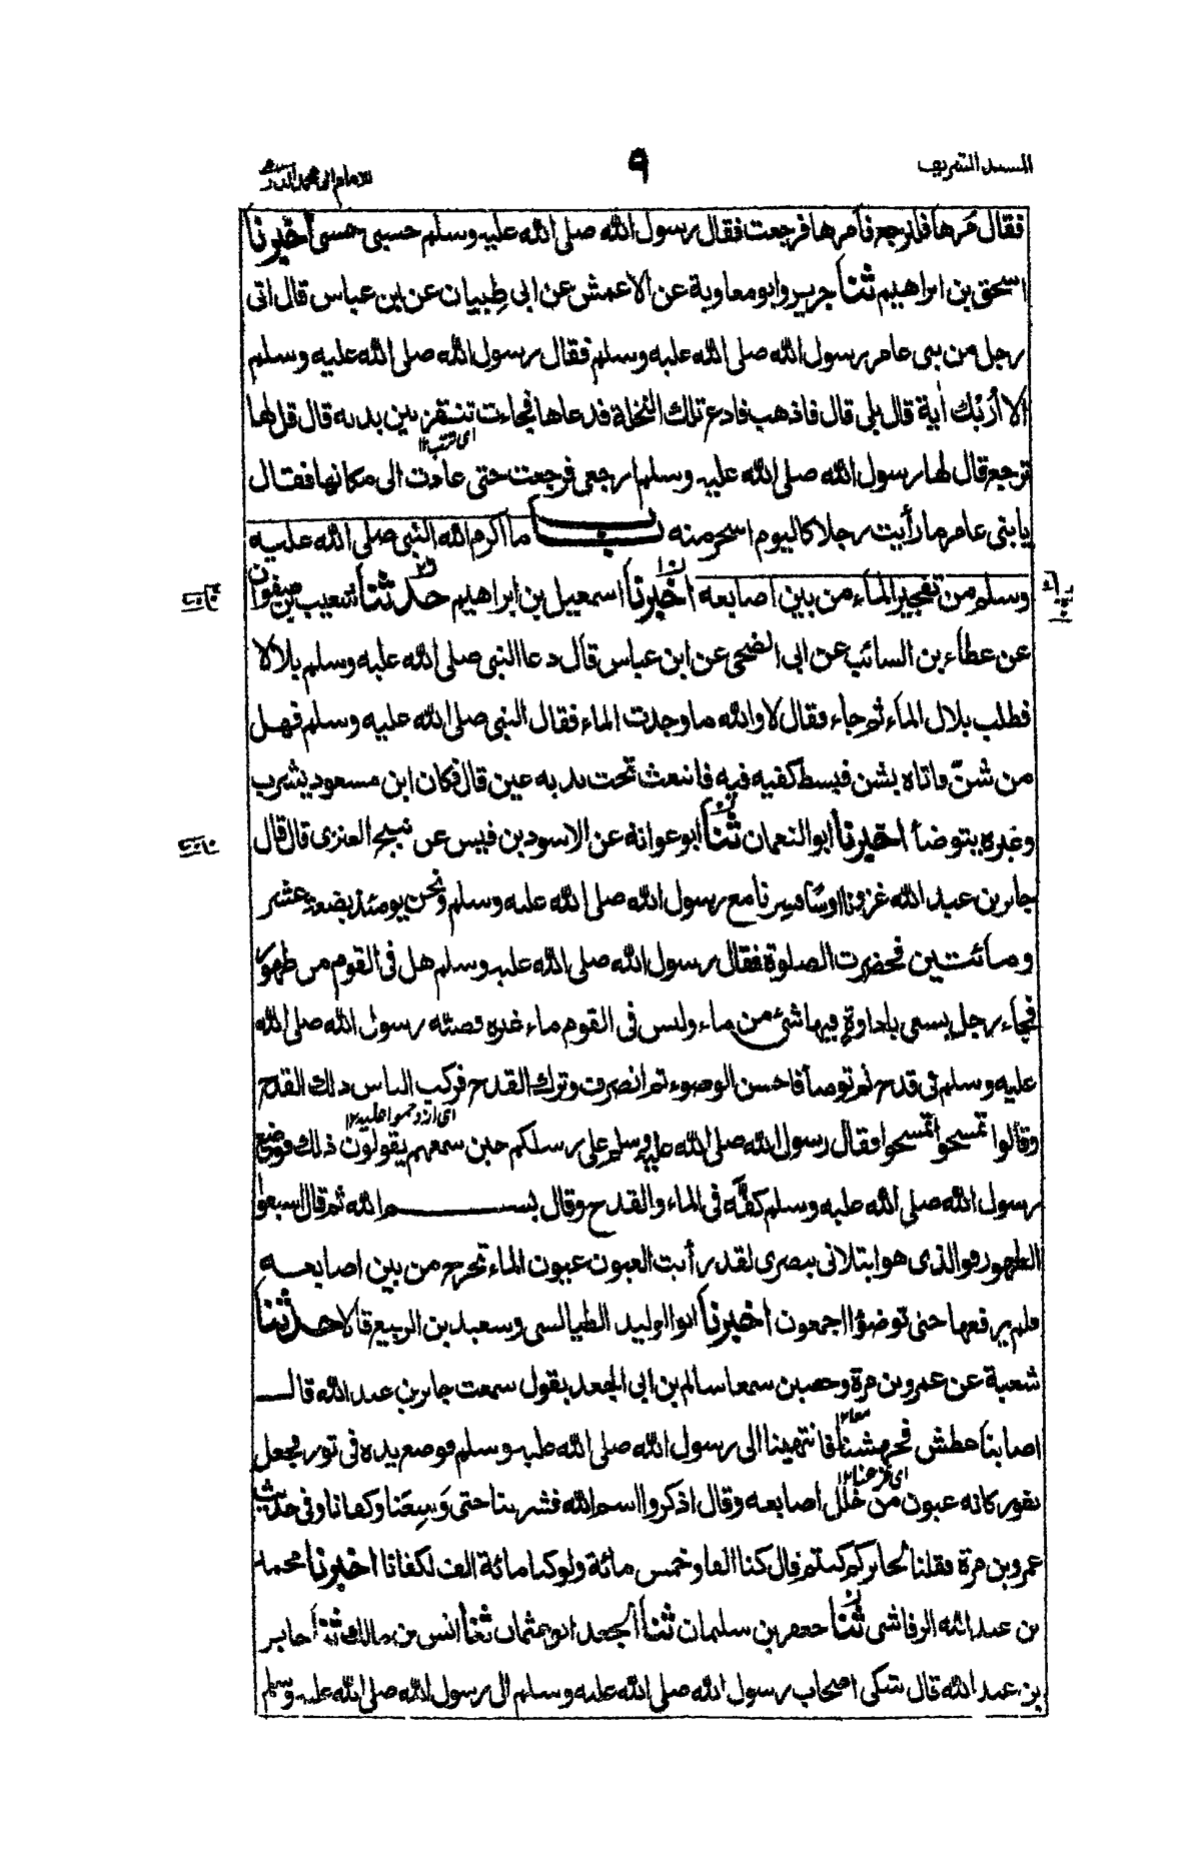 المسند الشريف
٩
للامام ابي محمد الدارمي
فقال مُرها فلترجع فأمرها فرجعت فقال رسول الله صلى الله عليه وسلم حسبي حسبي اخبرنا
اسحق بن ابراهيم ثنا جرير وابو معاوية عن الاعمش عن ابي ظبيان عن ابن عباس قال اتى
رجل من بنى عامر رسول الله صلى الله عليه وسلم فقال رسول الله صلى الله عليه وسلم
الا أريك أية قال بلى قال فاذهب فادع تلك النخلة فدعاها فجاءت تنقز بين يديه قال قل لها
اى تثب ١٢
ترجع قال لها رسول الله صلى الله عليه وسلم ارجعى فرجعت حتى عادت الى مكانها فقال
يا بنى عامر ما رأيت رجلا كاليوم اسحر منه باب ما اكرم الله النبي صلى الله عليه
وسلم من تفجير الماء من بين اصابعه اخبرنا اسمعيل بن ابراهيم حدثنا شعيب بن صفوان
عن عطاء بن السائب عن ابي الضحى عن ابن عباس قال دعا النبي صلى الله عليه وسلم بلالا
فطلب بلال الماء ثم جاء فقال لا والله ما وجدت الماء فقال النبي صلى الله عليه وسلم فهل
من شنّ فاتاه بشن فبسط كفيه فيه فانبعث تحت يديه عين قال فكان ابن مسعود يشرب
وغيره يتوضأ اخبرنا ابو النعمان ثنا ابو عوانة عن الاسود بن قيس عن نبيح العنزى قال قال
جابر بن عبد الله غزونا اوسافرنا مع رسول الله صلى الله عليه وسلم ونحن يومئذ بضعة عشر
ومائتين فحضرت الصلوة فقال رسول الله صلى الله عليه وسلم هل فى القوم من طهور
فجاء رجل يسعى باداوة فيها شئ من ماء وليس فى القوم ماء غيره فصبّه رسول الله صلى الله
عليه وسلم فى قدح ثم توضأ فاحسن الوضوء ثم انصرف وترك القدح فركب الناس ذلك القدح
اى ازدحموا عليه ١٢
وقالوا تمسحوا تمسحوا فقال رسول الله صلى الله عليه وسلم على رسلكم حين سمعهم يقولون ذلك فوضع
رسول الله صلى الله عليه وسلم كفّه فى الماء والقدح وقال بسم الله ثم قال اسبغوا
الطهور فوالذى هو ابتلانى ببصرى لقد رأيت العيون عيون الماء تخرج من بين اصابعه
فلم يرفعها حتى توضؤا اجمعون اخبرنا ابو الوليد الطيالسى وسعيد بن الربيع قالا حدثنا
شعبة عن عمرو بن مرة وحصين سمعا سالم بن ابي الجعد يقول سمعت جابر بن عبد الله قال
اصابنا عطش فجهشنا فانتهينا الى رسول الله صلى الله عليه وسلم فوضع يده فى تور فجعل
اى فزعنا ١٢
يفور كانه عيون من خلل اصابعه وقال اذكروا اسم الله فشربنا حتى وَسِعَنا وكفانا وفى حديث
عمرو بن مرة فقلنا لجابر كم كنتم قال كنا الفا وخمس مائة ولو كنا مائة الف لكفانا اخبرنا محمد
بن عبد الله الرقاشى ثنا جعفر بن سليمان ثنا الجعد ابو عثمان ثنا انس بن مالك ثنا جابر
بن عبد الله قال شكى اصحاب رسول الله صلى الله عليه وسلم الى رسول الله صلى الله عليه وسلم